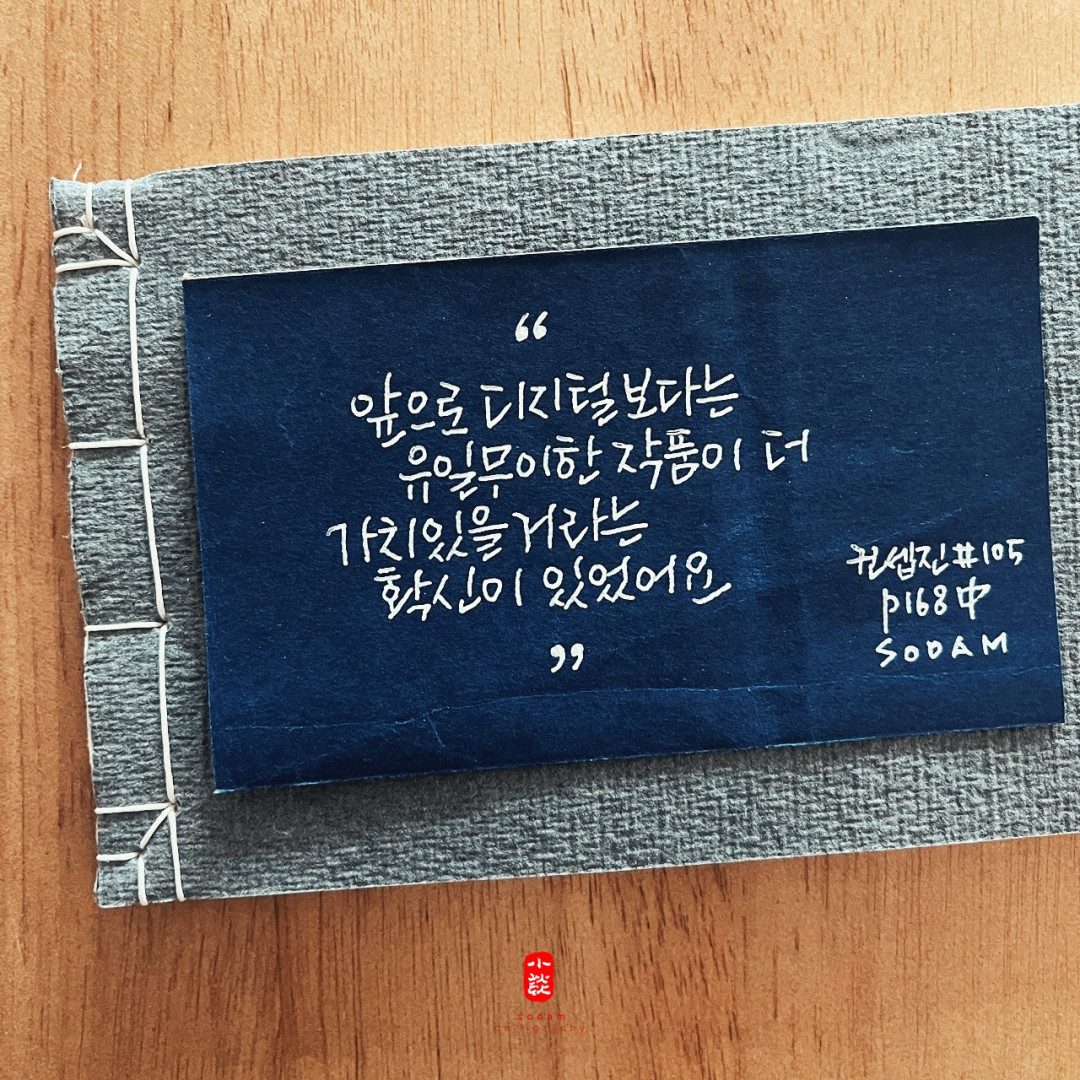 “
앞으로 디지털보다는
유일무이한 작품이 더
가치있을거라는
확신이 있었어요
”
컨셉진#105
p168中
SODAM
小談
sodam
calligraphy